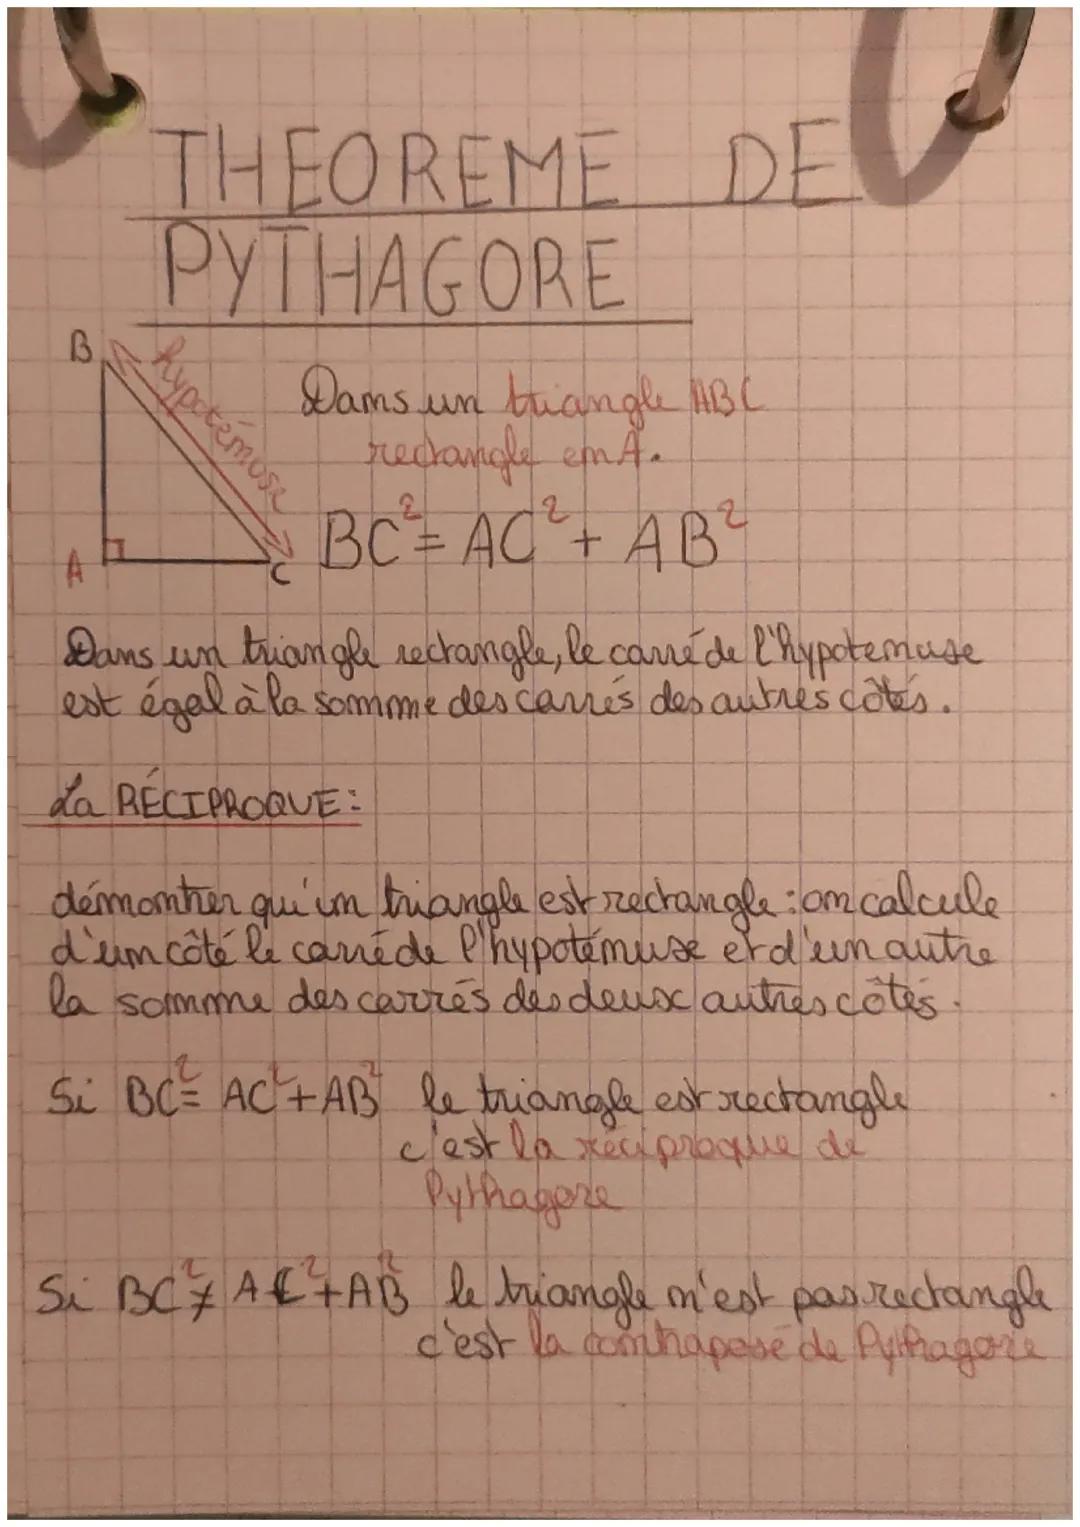 THEOREME DE
PYTHAGORE
B
hypoténuse
Dans un triangle ABC
rectangle en A.
BC²= AC²+ AB²
A
C
Dans un triangle rectangle, le carré de l'hypotenuse
est égal à la somme des carrés des autres côtés.
La RÉCIPROQUE:
démontrer qu'un triangle est rectangle : on calcule
d'un côté le carré de l'hypoténuse et d'un autre
la somme des carrés des deux autres côtés.
Si BC²= AC²+AB² le triangle est rectangle
c'est la réciproque de
Pythagore
Si BC²≠ AC²+AB² le triangle n'est pas rectangle
c'est la contraposé de Pythagore